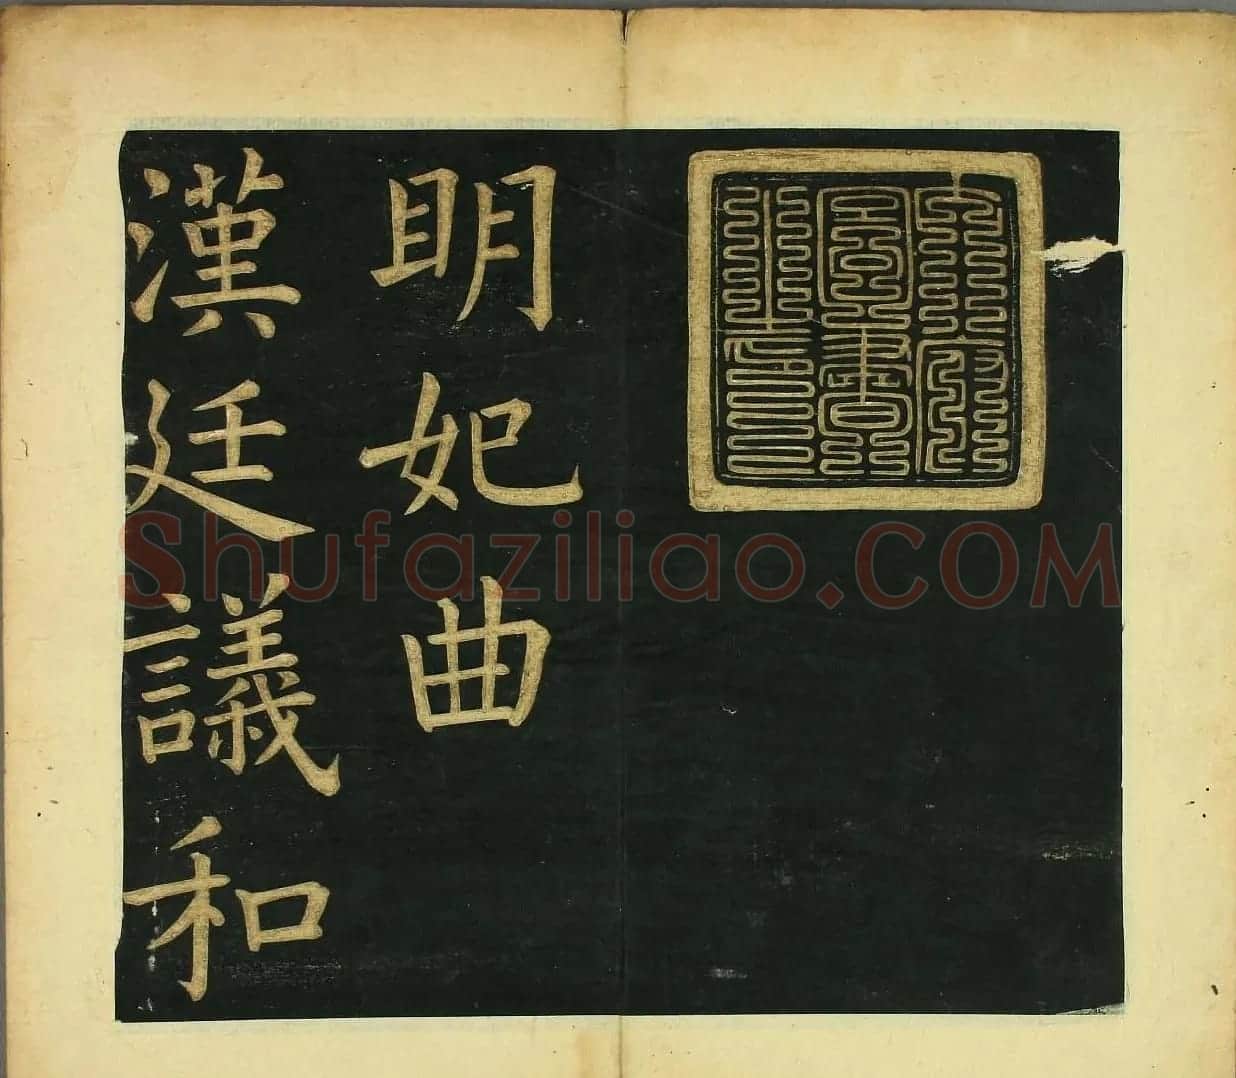 明妃曲
漢廷議和
Shufaziliao.COM